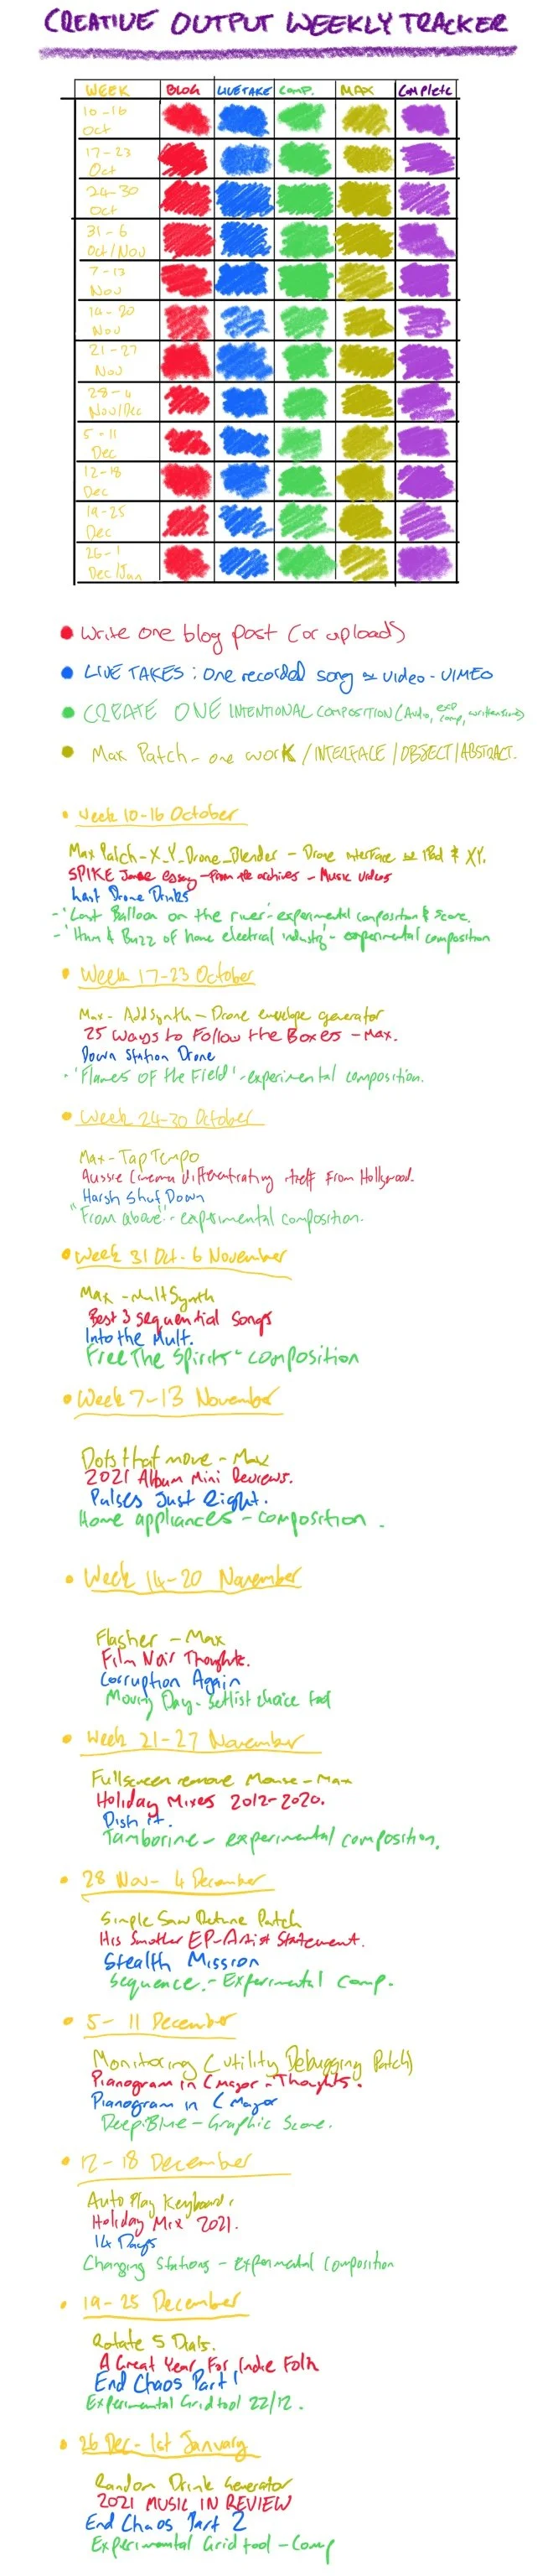 CREATIVE OUTPUT WEEKLY TRACKER
WEEK BLOG LIVETAKE COMP. MAX COMPLETE
10-16
Oct
17-23
Oct
24-30
Oct
31-6
Oct/Nov
7-13
Nov
14-20
Nov
21-27
Nov
28-4
Nov/Dec
5-11
Dec
12-18
Dec
19-25
Dec
26-1
Dec/Jan
Write one blog post (or upload)
LIVE TAKES: One recorded song video - VIMEO
CREATE ONE INTENTIONAL COMPOSITION (Audio, exp comp,
Max Patch - one work / INTERFACE / OBJECT / ABSTRACT.
Week 10-16 October
Max Patch - X_Y_Drone_Blender - Drone interface iPad & XY.
SPIKE Jonze essay - from the archives - Music videos
Last Drone Drinks
- 'Lost Balloon on the river' - experimental composition & score.
- 'Hum & Buzz of home electrical industry' - experimental composition
Week 17-23 October
Max - AddSynth - Drone envelope generator
25 Ways to Follow the Boxes - Max.
Down Station Drone
- 'Flames Of the Field' - experimental composition.
Week 24-30 October
Max - Tap Tempo
Aussie Cinema differentiating itself From Hollywood.
Harsh Shut Down
"From above" - experimental composition.
Week 31 Oct - 6 November
Max - MultSynth
Best 3 sequential Songs
Into the Mult.
Free The Spirits - composition
Week 7-13 November
Dots that move - Max
2021 Album Mini Reviews.
Pulses Just Right.
Home appliances - composition.
Week 14-20 November
Flasher - Max
Film Noir Thoughts.
Corruption Again
Moving Day - Setlist choice
Week 21-27 November
Fullscreen remove Mouse - Max
Holiday Mixes 2012-2020.
Dish it.
Tamborine - experimental composition.
28 Nov - 4 December
Simple Saw Detune Patch
His Smother EP - Artist Statement.
Stealth Mission
Sequence. - Experimental Comp.
5-11 December
Monitoring (utility Debugging Patch)
Pianogram in C Major - Thoughts.
Pianogram in C Major
Deep Blue - Graphic Score.
12-18 December
Auto Play Keyboard.
Holiday Mix 2021.
14 Days
Changing Stations - experimental composition
19-25 December
Rotate 5 Dials.
A Great Year For Indie Folk
End Chaos Part 1
Experimental Grid tool 22/12.
26 Dec - 1st January
Random Drink Generator
2021 MUSIC IN REVIEW
End Chaos Part 2
Experimental Grid tool - Comp